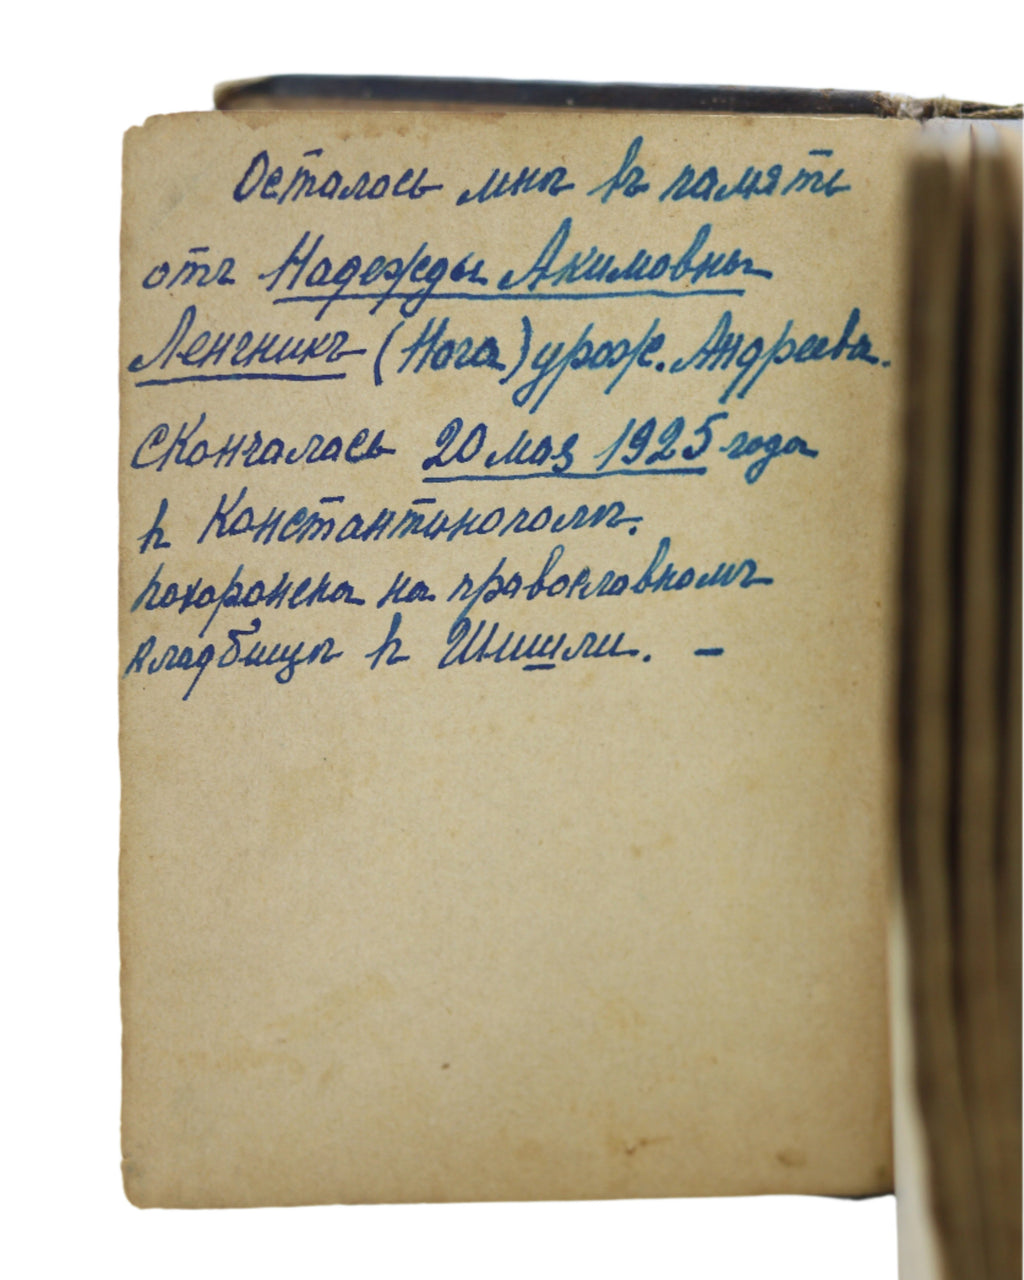 Осталось мнѣ въ память
отъ Надежды Акимовны
Ленгникъ (Нога) урож. Андреева.
скончалась 20 мая 1925 года
в Константинополѣ.
похоронена на православномъ
кладбищѣ в Шишли. –